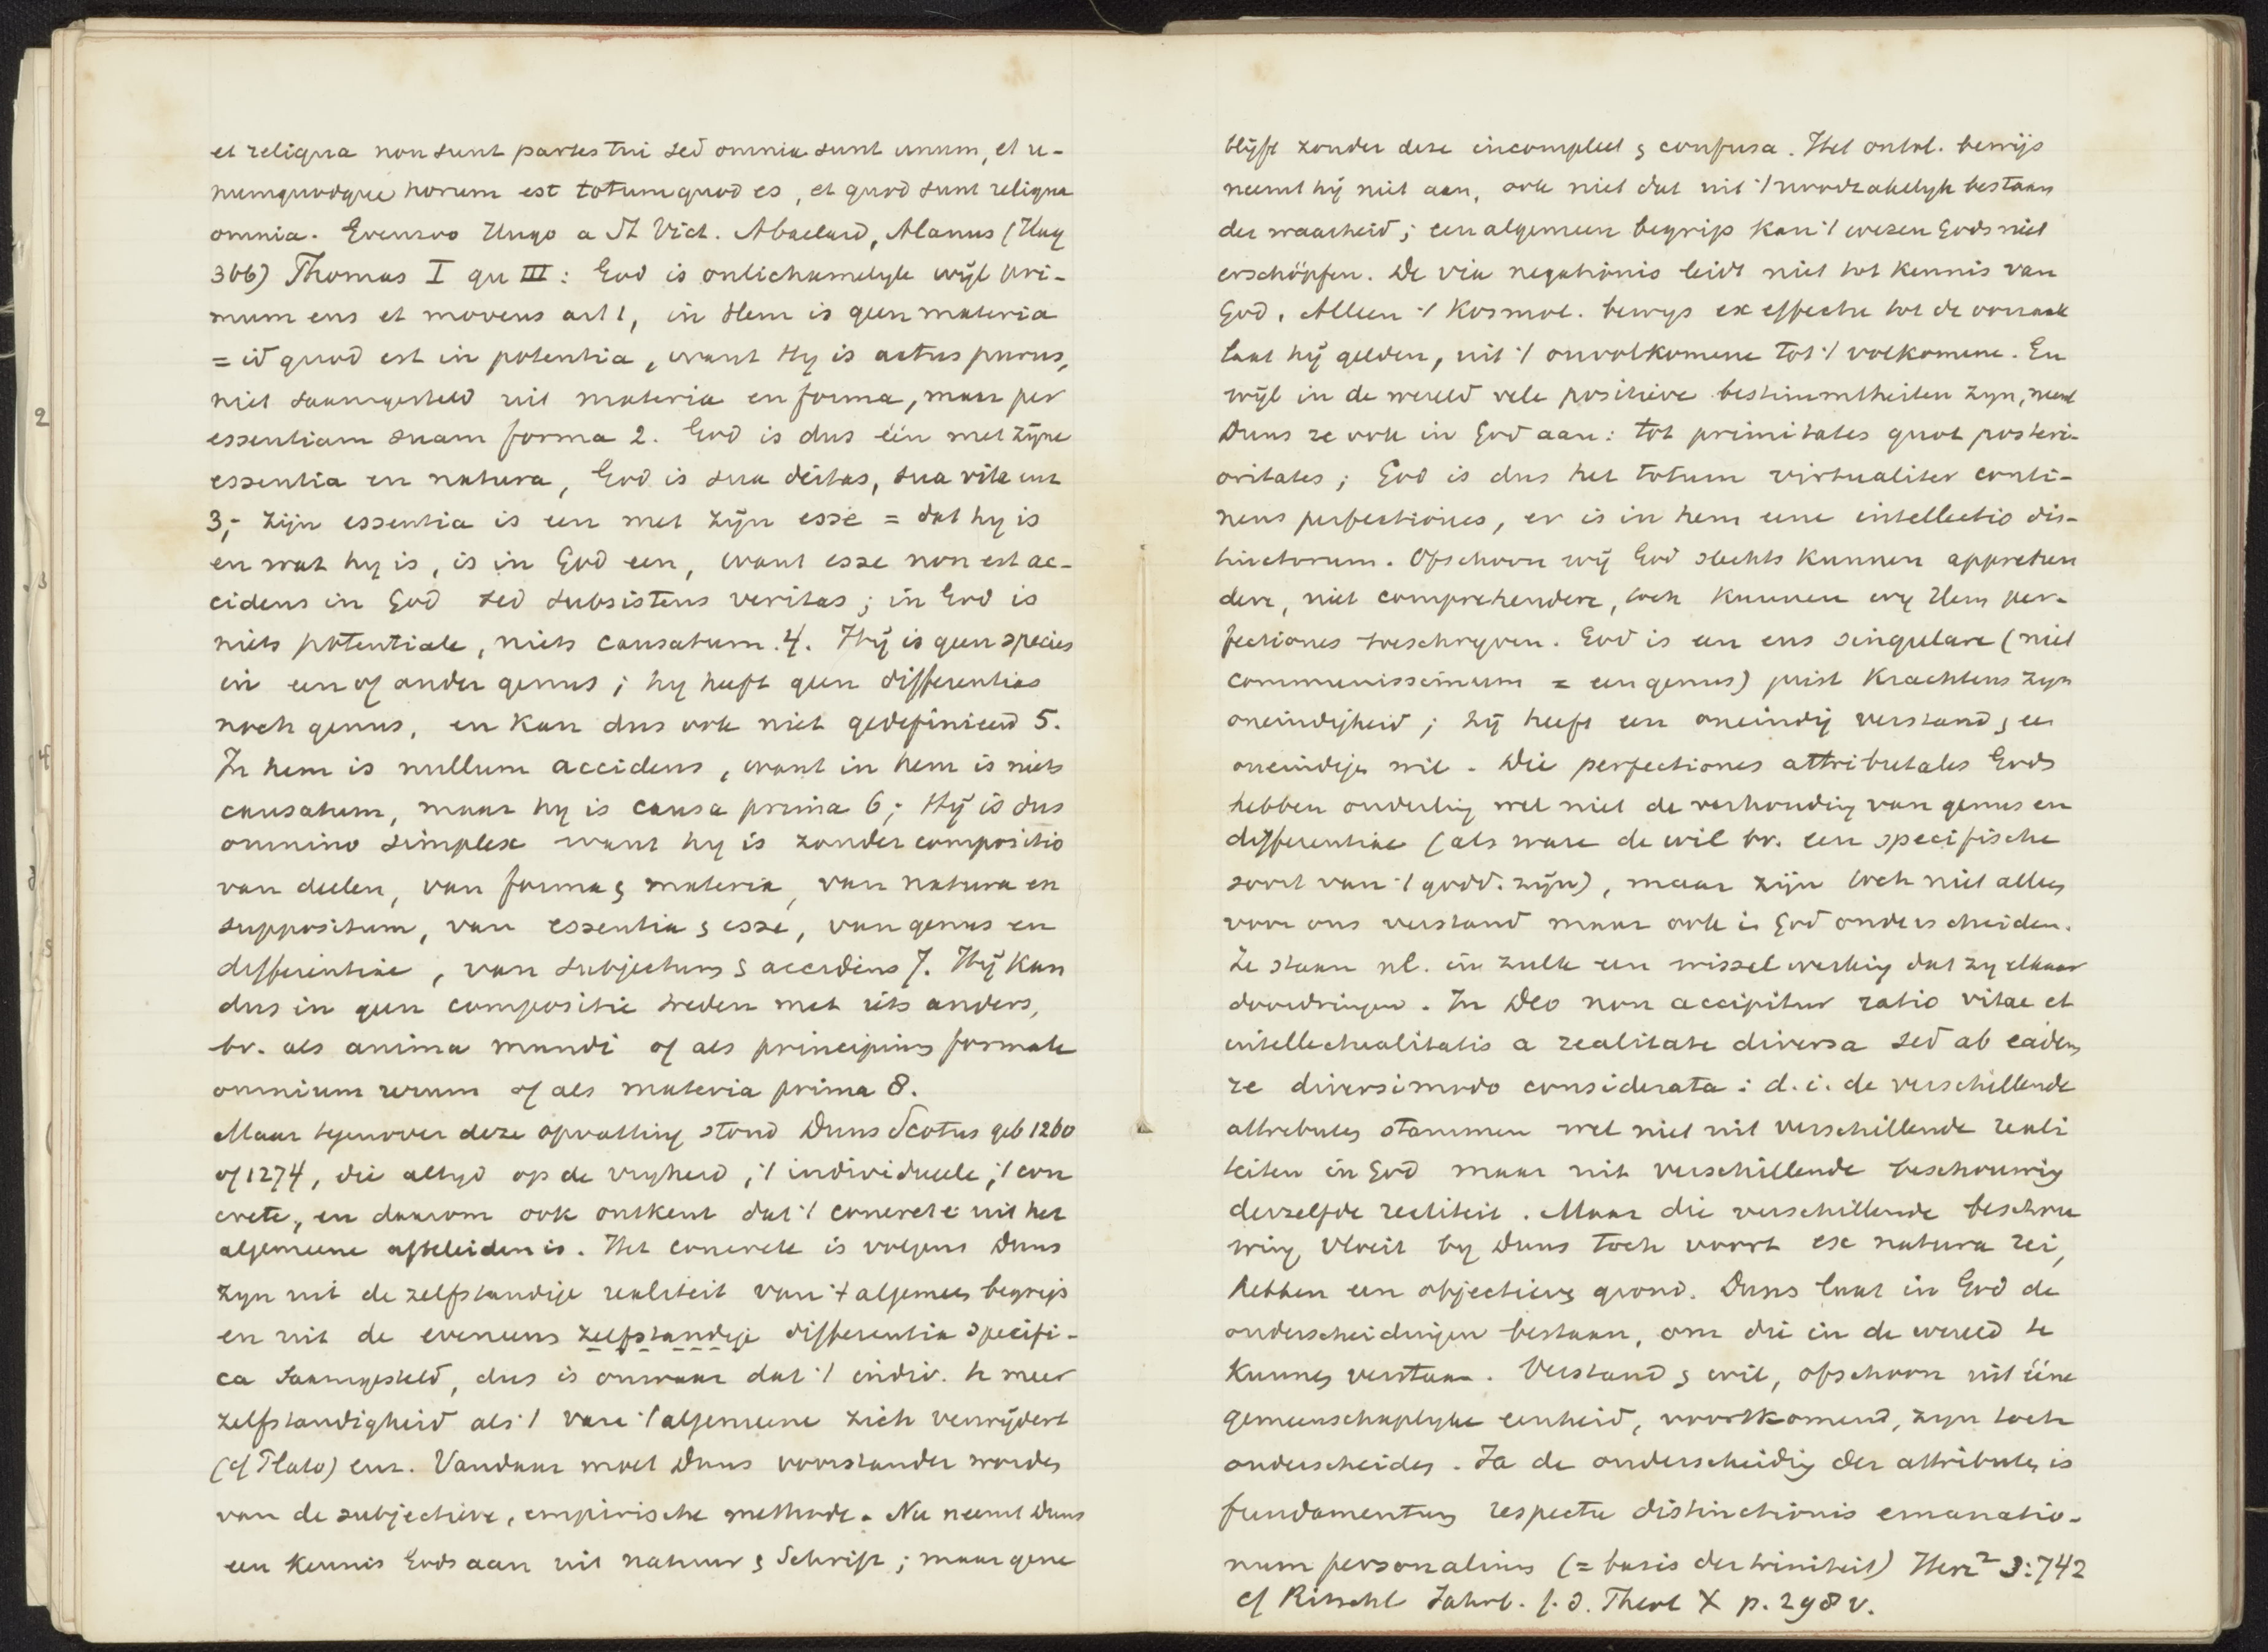 et reliqua non sunt partes tui sed omnia sunt unum, et u-
numquodque horum est totum quod es, et quod sunt reliqua
omnia. Evenzoo Hugo a St Vict. Abaelard, Alanus (Hag
366) Thomas I qu III: God is onlichamelyk wijl pri-
mum ens et movens art 1, in Hem is geen materia
= id quod est in potentia, want Hy is actus purus,
niet saamgesteld uit materia en forma, maar per
essentiam suam forma 2. God is dus één met zijne
essentia en natura, God is sua deitas, sua vita enz
3,- zijn essentia is een met zijn esse = dat hy is
en wat hy is, is in God een, want esse non est ac-
cidens in God sed subsistens veritas; in God is
niets potentiale, niets causatum. 4. Hij is geen species
in een of ander genus; hy heeft geen differentias
noch genus, en kan dus ook niet gedefinieerd 5.
In hem is nullum accidens, want in hem is niets
causatum, maar hy is causa prima 6; Hij is dus
omnino simplex want hy is zonder compositio
van deelen, van forma & materia, van natura en
suppositum, van essentia & esse, van genus en
differentiae, van subjectum & accidens 7. Hij kan
dus in geen compositie treden met iets anders,
bv. als anima mundi of als principium formale
omnium rerum of als materia prima 8.
Maar tegenover deze opvatting stond Duns Scotus geb 1260
of 1274, die altyd op de vryheid, 't individueele, 't con
crete, en daarom ook ontkent dat 't concrete uit het
algemeene afteleiden is. Het concrete is volgens Duns
zyn uit de zelfstandige realiteit van 't algemeen begrip
en uit de eveneens zelfstandige differentia specifi-
ca saamgesteld, dus is onwaar dat 't indiv. te meer
zelfstandigheid als 't van 't algemeene zich verwijdert
(cf Plato) enz. Vandaar moet Duns voorstander worden
van de subjectieve, empirische methode. Nu neemt Duns
een kennis Gods aan uit natuur & Schrift; maar gene
blijft zonder deze incompleet & confusa. Het ontol. bewijs
neemt hij niet aan, ook niet dat uit 't noodzakelyk bestaan
der waarheid; een algemeen begrip kan 't wezen Gods niet
erschöpfen. De via negationis leidt niet tot kennis van
God. Alleen 't Kosmol. bewys ex effectu tot de oorzaak
laat hij gelden, uit 't onvolkomene tot 't volkomene. En
wijl in de wereld vele positieve bestimmtheiten zyn, neemt
Duns ze ook in God aan: tot primitates quot posteri-
oritates; God is dus het totum virtualiter conti-
nens perfectiones, er is in hem eene intellectio dis-
tinctorum. Ofschoon wij God slechts kunnen apprehen
dere, niet comprehendere, toch kunnen wy Hem per-
fectiones toeschryven. God is een ens singulare (niet
communissimum = een genus) juist krachtens zyn
oneindigheid; hij heeft een oneindig verstand & een
oneindigen wil. Die perfectiones attributales Gods
hebben onderling wel niet de verhouding van genus en
differentiae (als ware de wil bv. een specifische
soort van 't godd. zijn), maar zijn toch niet alleen
voor ons verstand maar ook in God onderscheiden.
Ze staan nl. in zulk een wisselwerking dat zy elkaar
doordringen. In Deo non accipitur ratio vitae et
intellectualitatis a realitate diversa sed ab eadem
re diversimodo considerata: d.i. de verschillende
attributen stammen wel niet uit verschillende reali
teiten in God maar uit verschillende beschouwing
derzelfde realiteit. Maar die verschillende beschou
wing vloeit by Duns toch voort ex natura rei,
hebben een objectieven grond. Duns laat in God de
onderscheidingen bestaan, om die in de wereld te
kunnen verstaan. Verstand & wil, ofschoon uit ééne
gemeenschaplyke eenheid, voortkomend, zyn toch
onderscheiden. Ja de onderscheiding der attributen is
fundamentum respectu distinctionis emanatio-
num personalium (= basis der triniteit) Herz² 3:742
cf Ritschl Jahrb. f. d. Theol X p. 298 v.